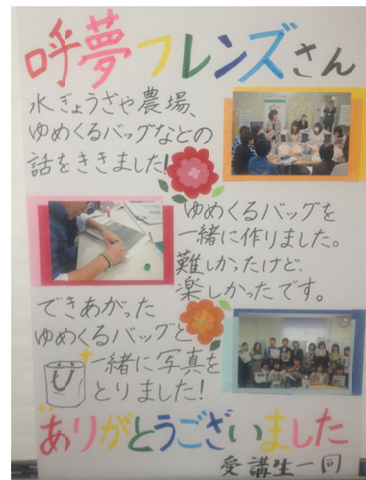 呼夢フレンズさん
水ぎょうざや農場、
ゆめくるバッグなどの
話をききました!
ゆめくるバッグを
一緒に作りました。
難しかったけど、
楽しかったです。
できあがった
ゆめくるバッグと
一緒に写真を
とりました!
ありがとうございました
受講生一同